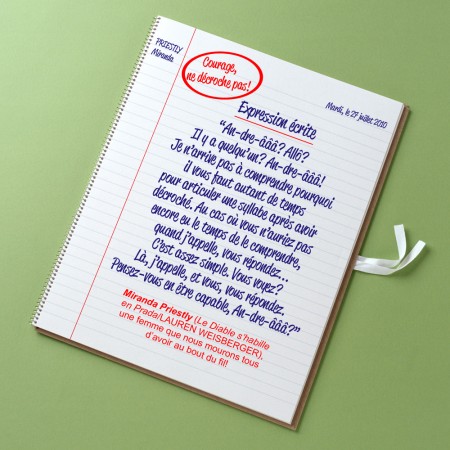 PRIESTLY
Miranda
Courage,
ne décroche pas!
Mardi, le 27 juillet 2010
Expression écrite
"An-dre-âââ? Allô?
Il y a quelqu'un? An-dre-âââ!
Je n'arrive pas à comprendre pourquoi
il vous faut autant de temps
pour articuler une syllabe après avoir
décroché. Au cas où vous n'auriez pas
encore eu le temps de le comprendre,
quand j'appelle, vous répondez...
C'est assez simple. Vous voyez?
Là, j'appelle, et vous, vous répondez.
Pensez-vous en être capable, An-dre-âââ?"
Miranda Priestly (Le Diable s'habille
en Prada/LAUREN WEISBERGER),
une femme que nous mourons tous
d'avoir au bout du fil!